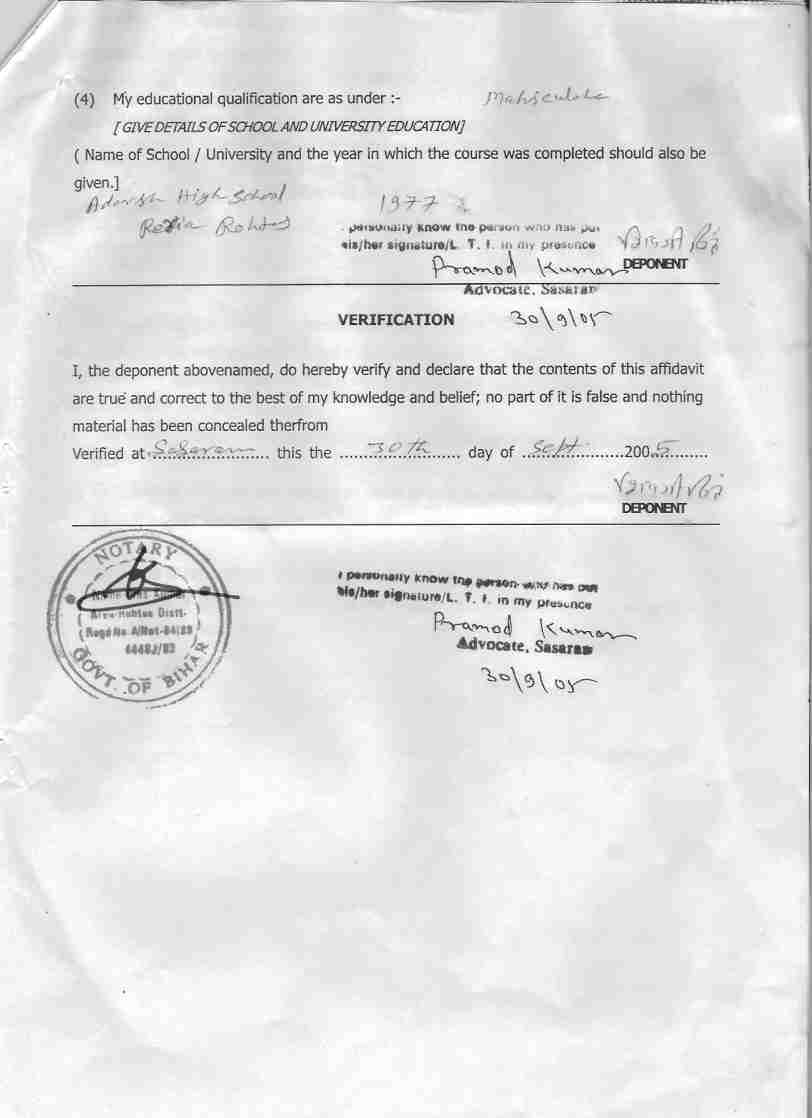 (4) My educational qualification are as under :- Matriculate
[ GIVE DETAILS OF SCHOOL AND UNIVERSITY EDUCATION]
( Name of School / University and the year in which the course was completed should also be
given.]
Adarsh High School 1977
Rohtas
I personally know the person who has put
his/her signature/L. T. I. in my presence
Pramod Kumar
DEPONENT
Advocate, Sasaram
VERIFICATION 30/9/05
I, the deponent abovenamed, do hereby verify and declare that the contents of this affidavit
are true and correct to the best of my knowledge and belief; no part of it is false and nothing
material has been concealed therfrom
Verified at Sasaram this the 30th day of Sept. 2005
DEPONENT
NOTARY
Area Rohtas Distt.
GOVT. OF BIHAR
I personally know the person who has put
his/her signature/L. T. I. in my presence
Pramod Kumar
Advocate, Sasaram
30/9/05